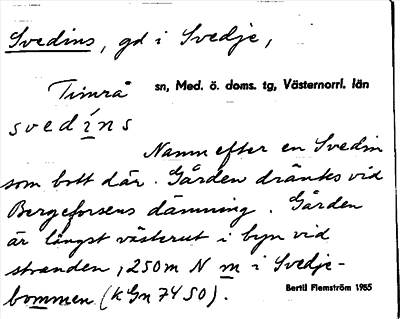 Svedins, gd i Svedje,
Timrå sn, Med. ö. doms. tg, Västernorrl. län
svedíns
Namn efter en Svedin
som bott där. Gården dränks vid
Bergeforsens dämning. Gården
är längst västerut i byn vid
stranden, 1250m N m i Svedje-
bommen (k Gn 74 SO).
Bertil Flemström 1965